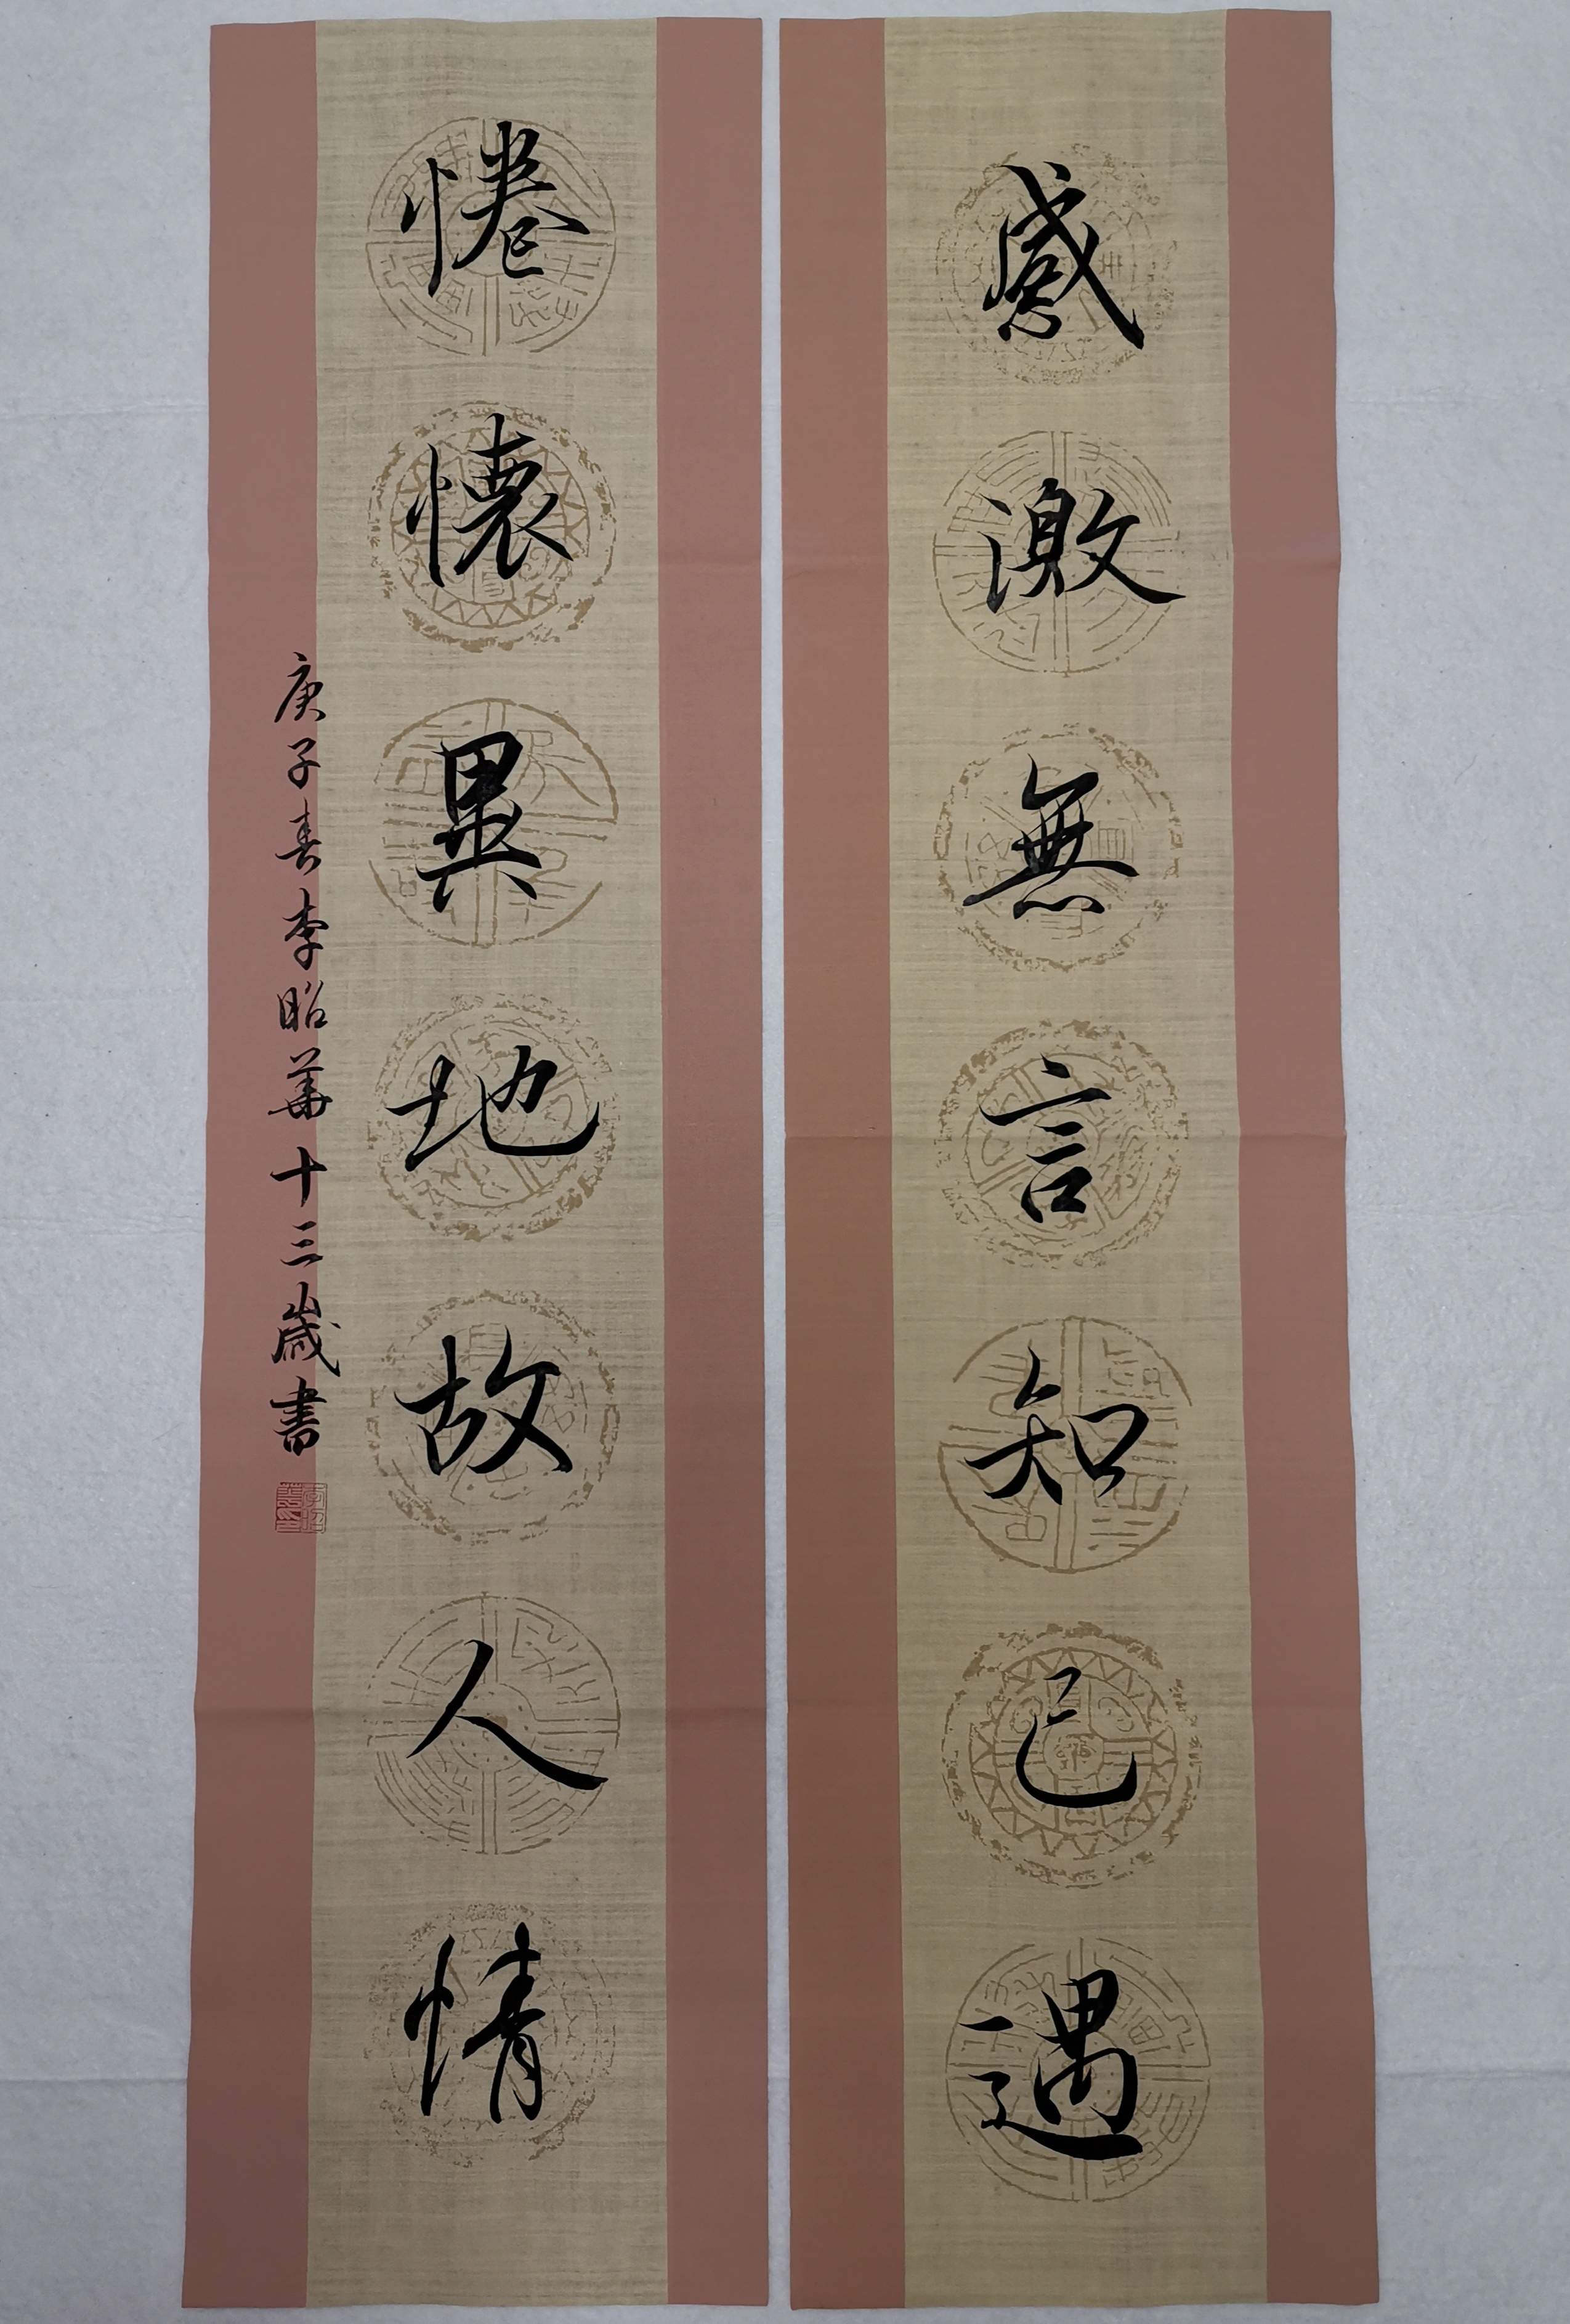 感激無言知己遇
惓懷異地故人情
庚子春李昭華十三歲書